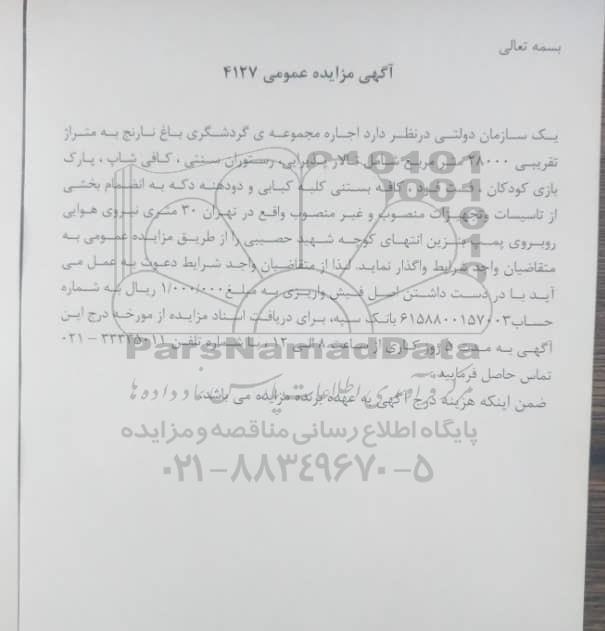 بسمه تعالی
آگهی مزایده عمومی ۴۱۲۷
یک سازمان دولتی درنظر دارد اجاره مجموعه ی گردشگری باغ نارنج به متراژ
تقریبی ۲۸۰۰۰ متر مربع شامل تالار پذیرایی، رستوران سنتی ، کافی شاپ ، پارک
بازی کودکان ، فست فود ، کافه بستنی کلبه کبابی و دودهنه دکه به انضمام بخشی
از تاسیسات و تجهیزات منصوب و غیر منصوب واقع در تهران ۳۰ متری نیروی هوایی
روبروی پمپ بنزین انتهای کوچه شهید حصیبی را از طریق مزایده عمومی به
متقاضیان واجد شرایط واگذار نماید. لذا از متقاضیان واجد شرایط دعوت به عمل می
آید با در دست داشتن اصل فیش واریزی به مبلغ ۱/۰۰۰/۰۰۰ ریال به شماره
حساب ۶۱۵۸۸۰۰۱۵۷۰۰۳ بانک سپه، برای دریافت اسناد مزایده از مورخه درج این
آگهی به مدت ۵ روز کاری از ساعت ۸ الی ۱۲ ، با شماره تلفن ۰۲۱ – ۳۳۲۴۵۰۱۱
ParsNamadData
تماس حاصل فرمایید.
ضمن اینکه هزینه درج آگهی به عهده برنده مزایده می باشد.
پایگاه اطلاع رسانی مناقصه و مزایده
۰۲۱-۸۸۳۴۹۶۷۰-۵